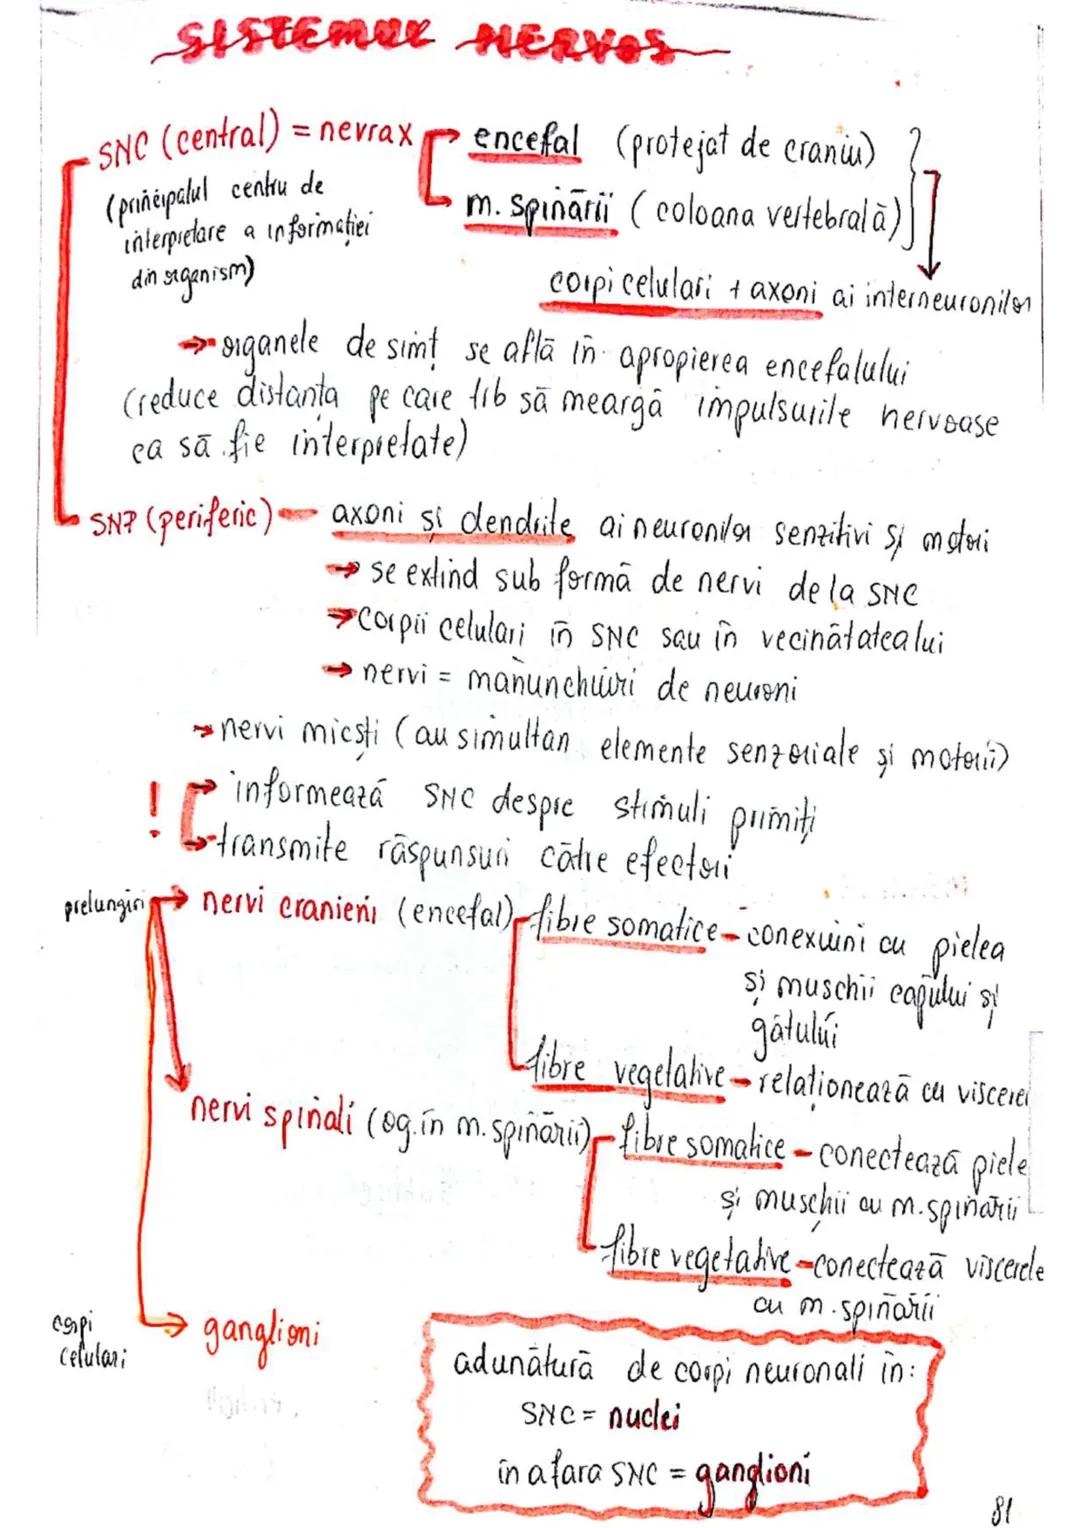 SISTEMUL NERVOS
SNC (central) = nevrax
encefal (protejat de craniu)
m. spinării (coloana vertebrală)
(principalul centru de
interpretare a informației
din organism)
corpi celulari + axoni ai interneuronilor
→ organele de simț se află în apropierea encefalului
(reduce distanța pe care trb să meargă impulsurile nervoase
ca să fie interpretate)
SNP (periferic) - axoni și dendrite ai neuronilor senzitivi și motori
→ se extind sub formă de nervi de la SNC
→ corpii celulari în SNC sau în vecinătatea lui
→ nervi = mănunchiuri de neuroni
→ nervi micști (au simultan elemente senzoriale și motorii)
! → informează SNC despre stimuli primiți
→ transmite răspunsuri către efectori
prelungiri → nervi cranieni (encefal)
fibre somatice - conexiuni cu pielea
și muschii capului și
gâtului
fibre vegetative - relaționează cu viscere
nervi spinali (og. în m. spinării)
fibre somatice - conectează piele
și muschii cu m. spinării
fibre vegetative - conectează viscerele
cu m. spinării
corpi
celulari
→ ganglioni
adunătură de corpi neuronali în:
SNC = nuclei
în afara SNC = ganglioni
81